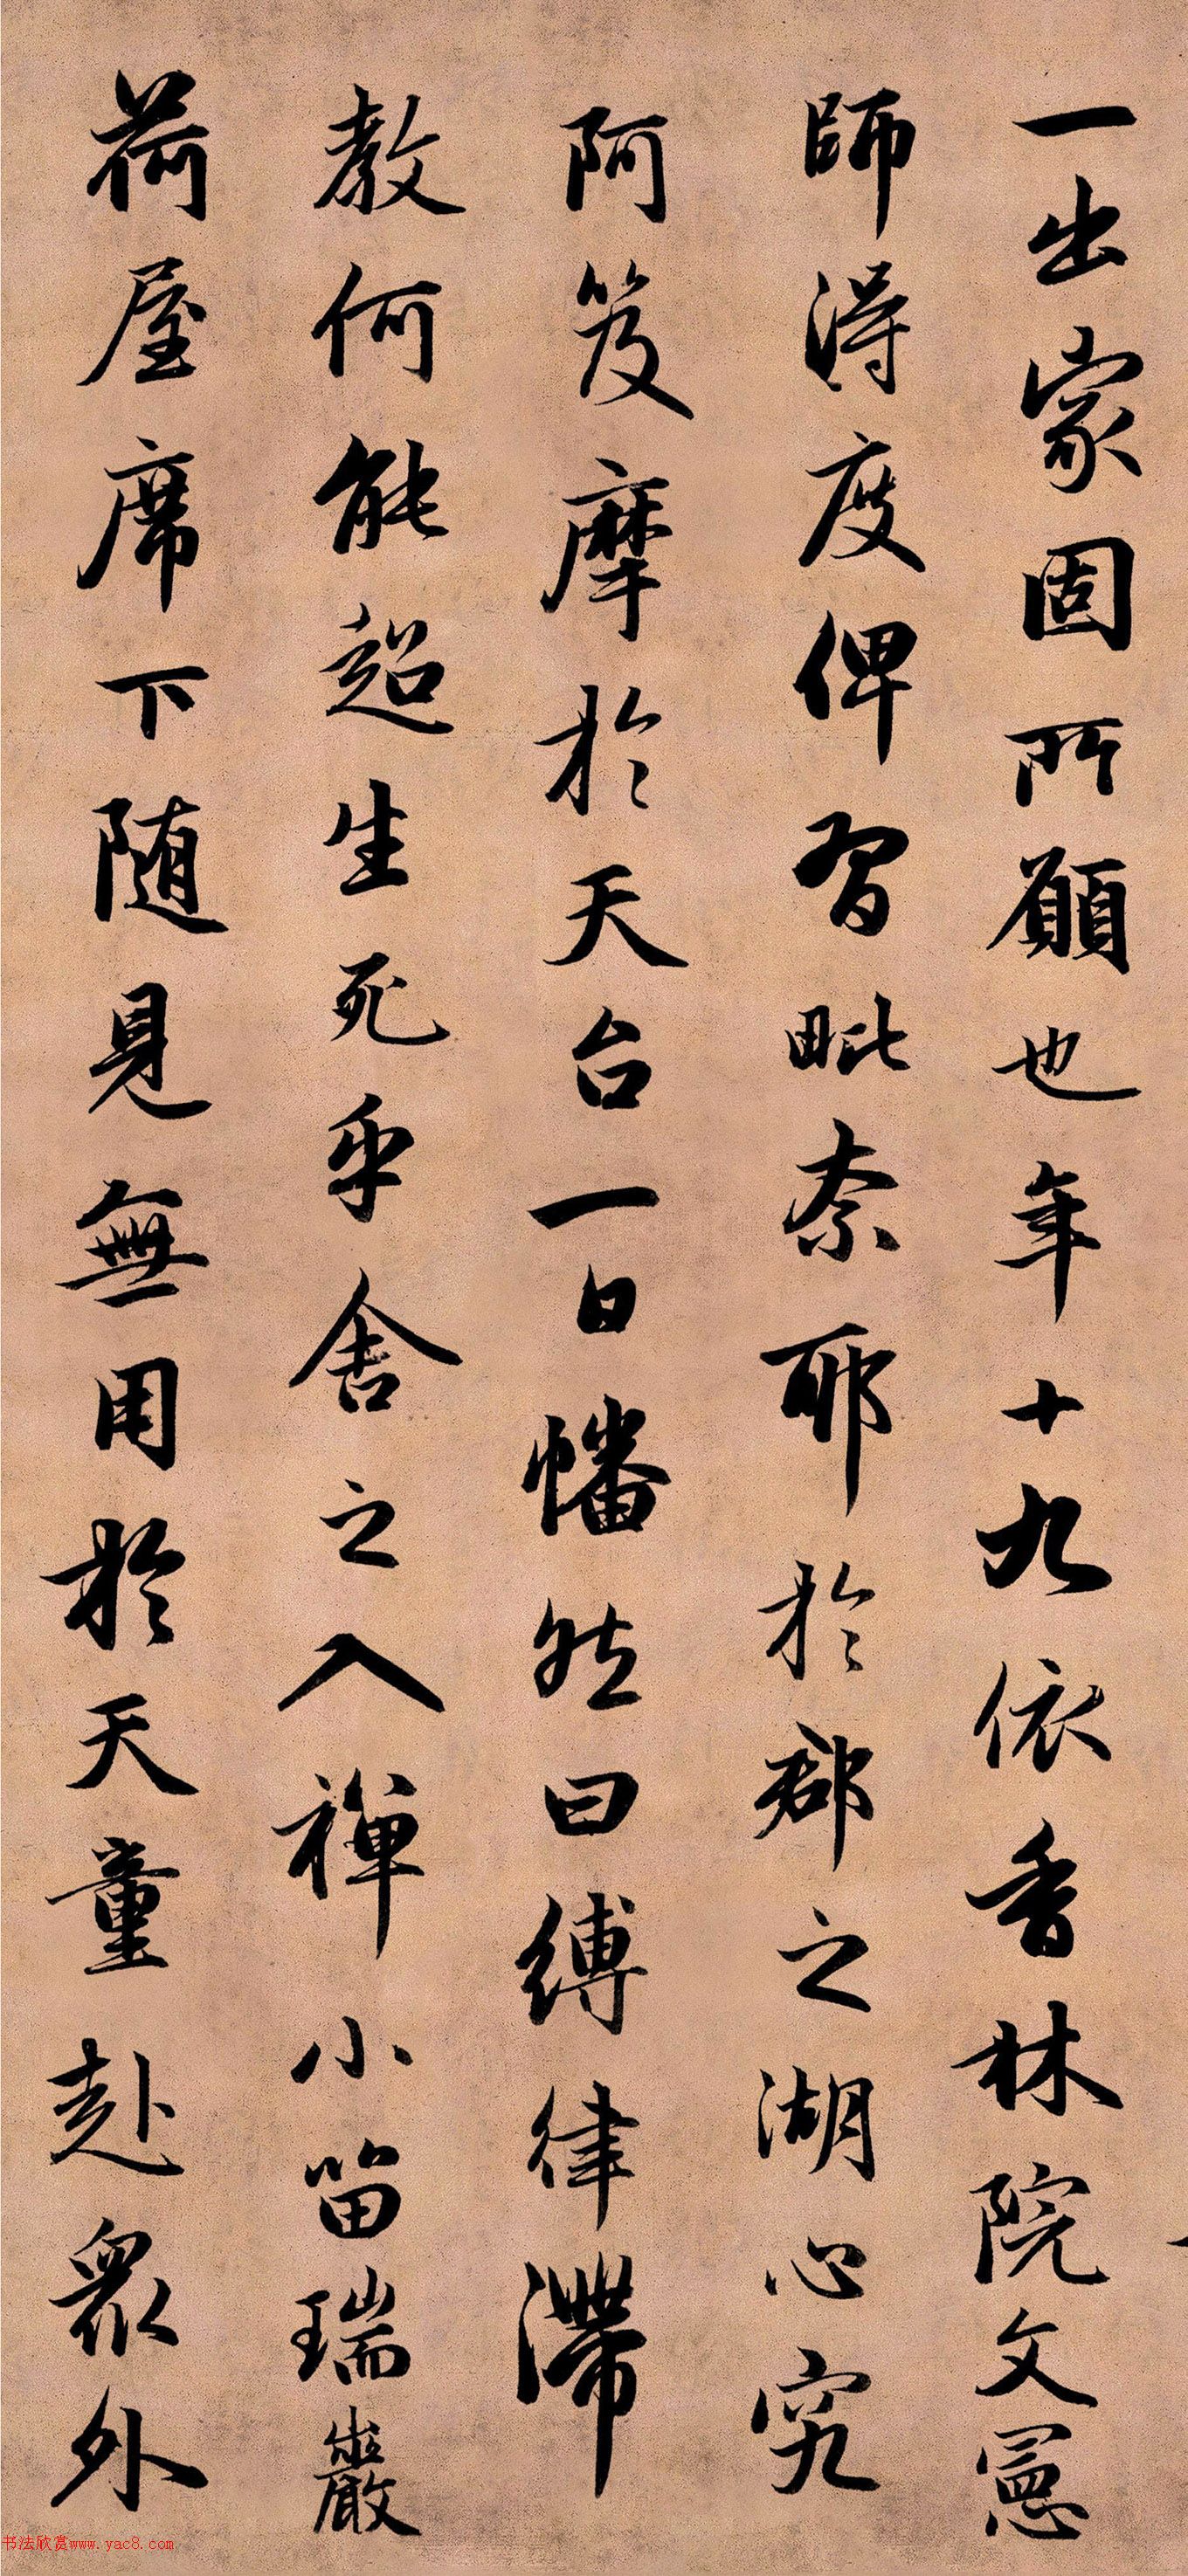 一出家固所願也年十九依香林院文憲
師得度俾習毗奈耶於郡之湖心究
阿笈摩於天台一日幡然曰縛律滯
教何能超生死乎舍之入禪小留瑞巖
荷屋席下隨見無用於天童赴眾外
书法欣赏www.yac8.com